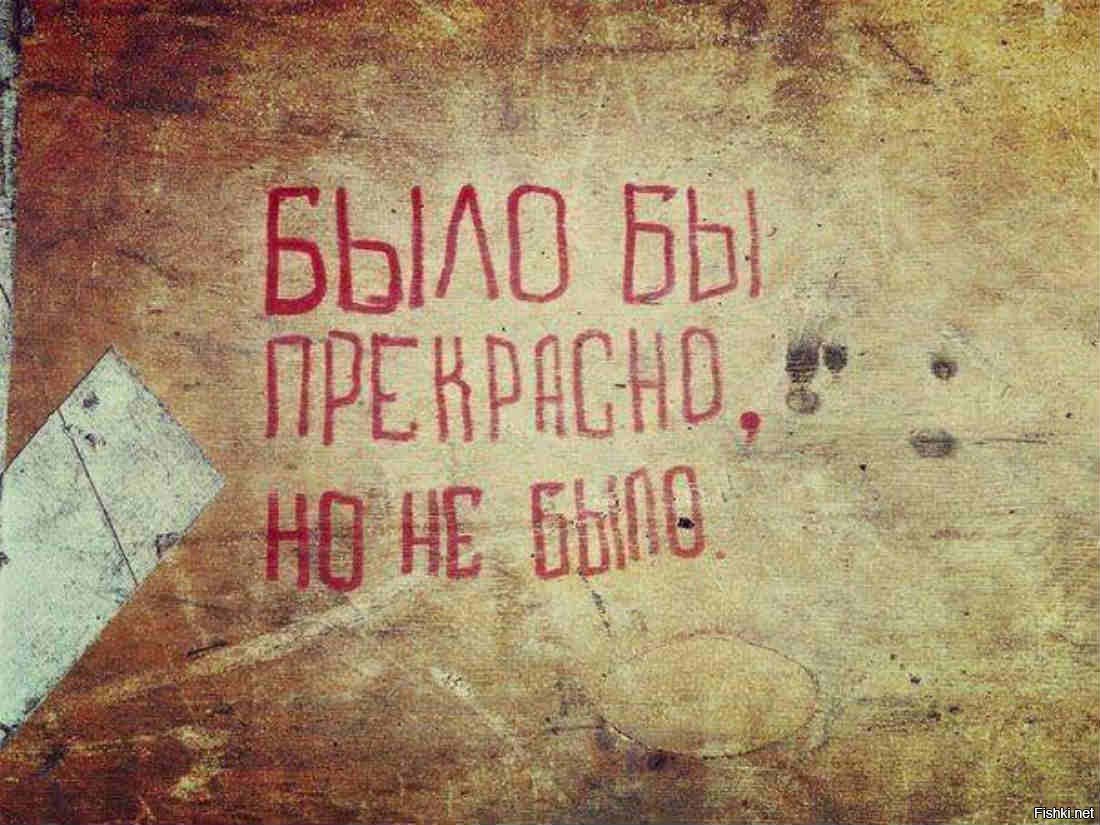 БЫЛО БЫ
ПРЕКРАСНО,
НО НЕ БЫЛО.
Fishki.net